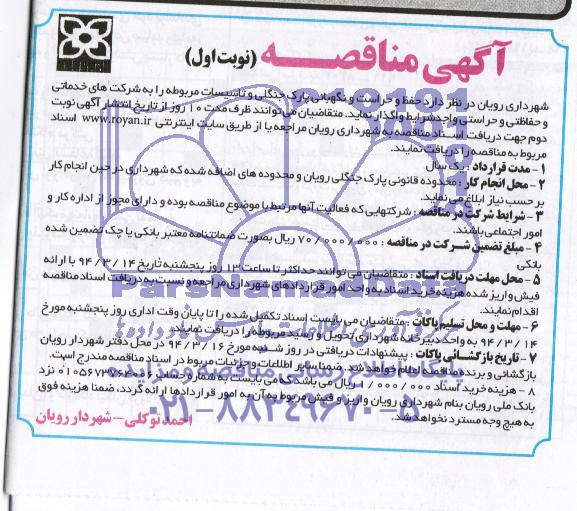 آگهی مناقصه (نوبت اول)
شهرداری رویان در نظر دارد حفظ و حراست و نگهبانی پارک جنگلی و تاسیسات مربوطه را به شرکت های خدماتی
و حفاظتی و حراستی واجد شرایط واگذار نماید. متقاضیان می توانند ظرف مدت ۱۰ روز از تاریخ انتشار آگهی نوبت
دوم جهت دریافت اسناد مناقصه به شهرداری رویان مراجعه یا از طریق سایت اینترنتی www.royan.ir اسناد
مربوط به مناقصه را دریافت نمایند.
۱- مدت قرارداد : یک سال
۲- محل انجام کار : محدوده قانونی پارک جنگلی رویان و محدوده های اضافه شده که شهرداری در حین انجام کار
بر حسب نیاز ابلاغ می نماید.
۳- شرایط شرکت در مناقصه : شرکتهایی که فعالیت آنها مرتبط با موضوع مناقصه بوده و دارای مجوز از اداره کار و
امور اجتماعی باشند.
۴- مبلغ تضمین شرکت در مناقصه : ۷۰/۰۰۰/۰۰۰ ریال بصورت ضمانتنامه معتبر بانکی یا چک تضمین شده
بانکی
۵- محل مهلت دریافت اسناد : متقاضیان می توانند حداکثر تا ساعت ۱۳ روز پنجشنبه تاریخ ۹۴/۳/۱۴ با ارائه
فیش واریز شده هزینه خرید اسناد به واحد امور قراردادهای شهرداری مراجعه و نسبت به دریافت اسناد مناقصه
اقدام نمایند.
۶- مهلت و محل تسلیم پاکات : متقاضیان می بایست اسناد تکمیل شده را تا پایان وقت اداری روز پنجشنبه مورخ
۹۴/۳/۱۴ به واحد دبیرخانه شهرداری تحویل و رسید مربوطه را دریافت نمایند.
۷- تاریخ بازگشائی پاکات : پیشنهادات دریافتی در روز شنبه مورخ ۹۴/۳/۱۶ در محل دفتر شهردار رویان
بازگشائی و برنده مناقصه اعلام خواهد شد. ضمنا سایر اطلاعات و جزئیات مربوط در اسناد مناقصه مندرج است.
۸- هزینه خرید اسناد ۱/۰۰۰/۰۰۰ ریال می باشد که می بایست به شماره حساب نزد
بانک ملی رویان بنام شهرداری رویان واریز و فیش مربوط به آن به امور قراردادها ارائه گردد، ضمنا هزینه فوق
به هیچ وجه مسترد نخواهد شد.
احمد توکلی - شهردار رویان
ParsNamadData
۰۲۱-۸۸۳۴۹۶۷۰-۵